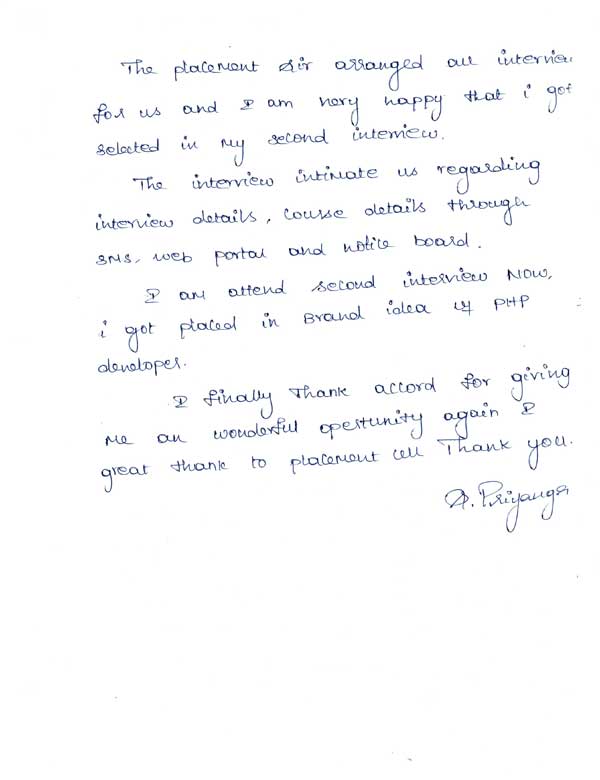 The placement sir arranged all interview
for us and I am very happy that i got
selected in my second interview.
The interview intimate us regarding
interview details, course details through
SMS, web portal and notice board.
I am attend second interview Now,
i got placed in Brand idea as PHP
developer.
I finally Thank accord for giving
me an wonderful opestunity again I
great thank to placement cell Thank you.
A. Priyanga